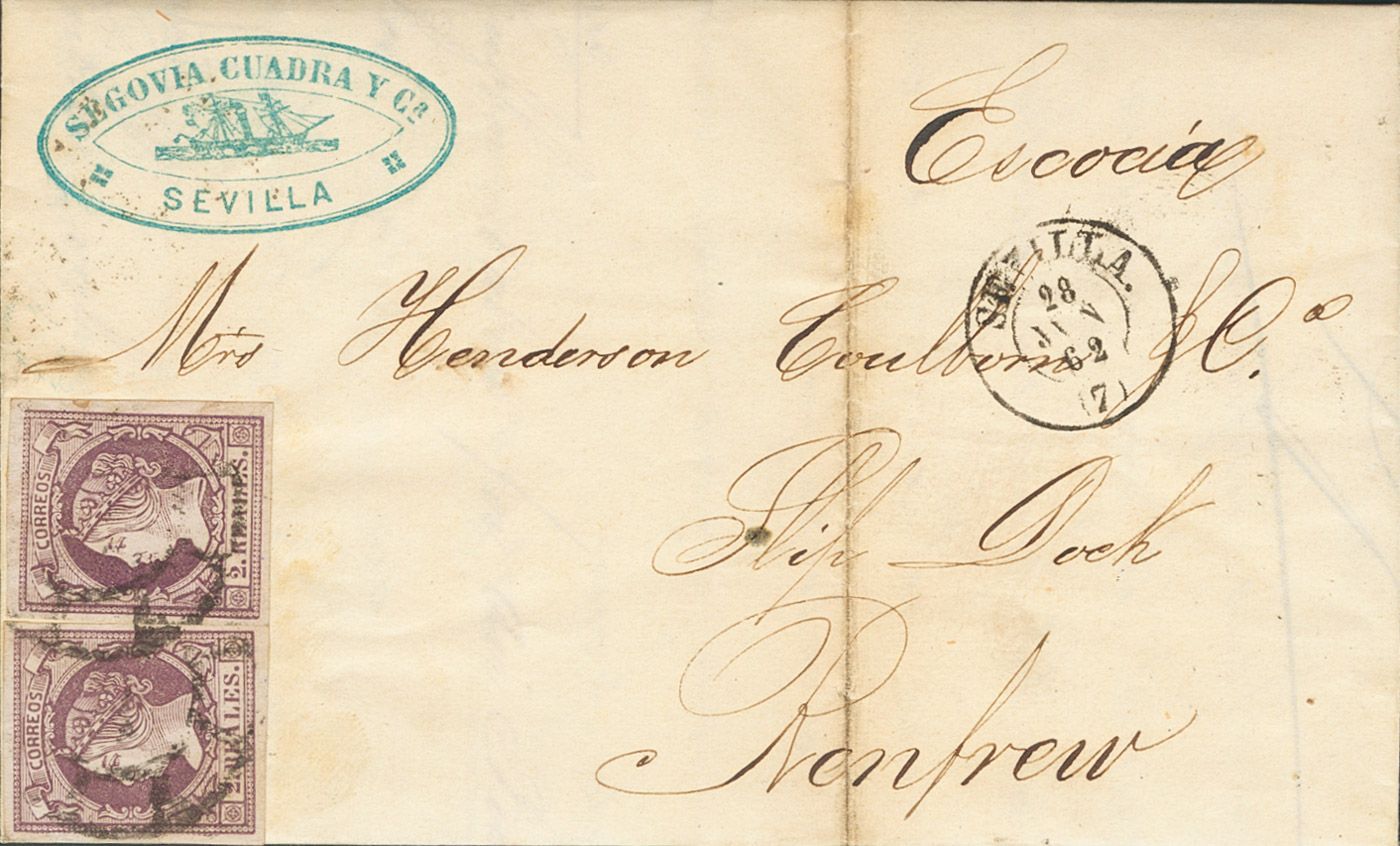 SEGOVIA CUADRA Y Cª
SEVILLA
Escocia
SEVILLA.
28
62
(7)
Mrs Henderson Coulborn & Cª
Slip Dock
Renfrew
CORREOS
2. REALES.
CORREOS
2. REALES.